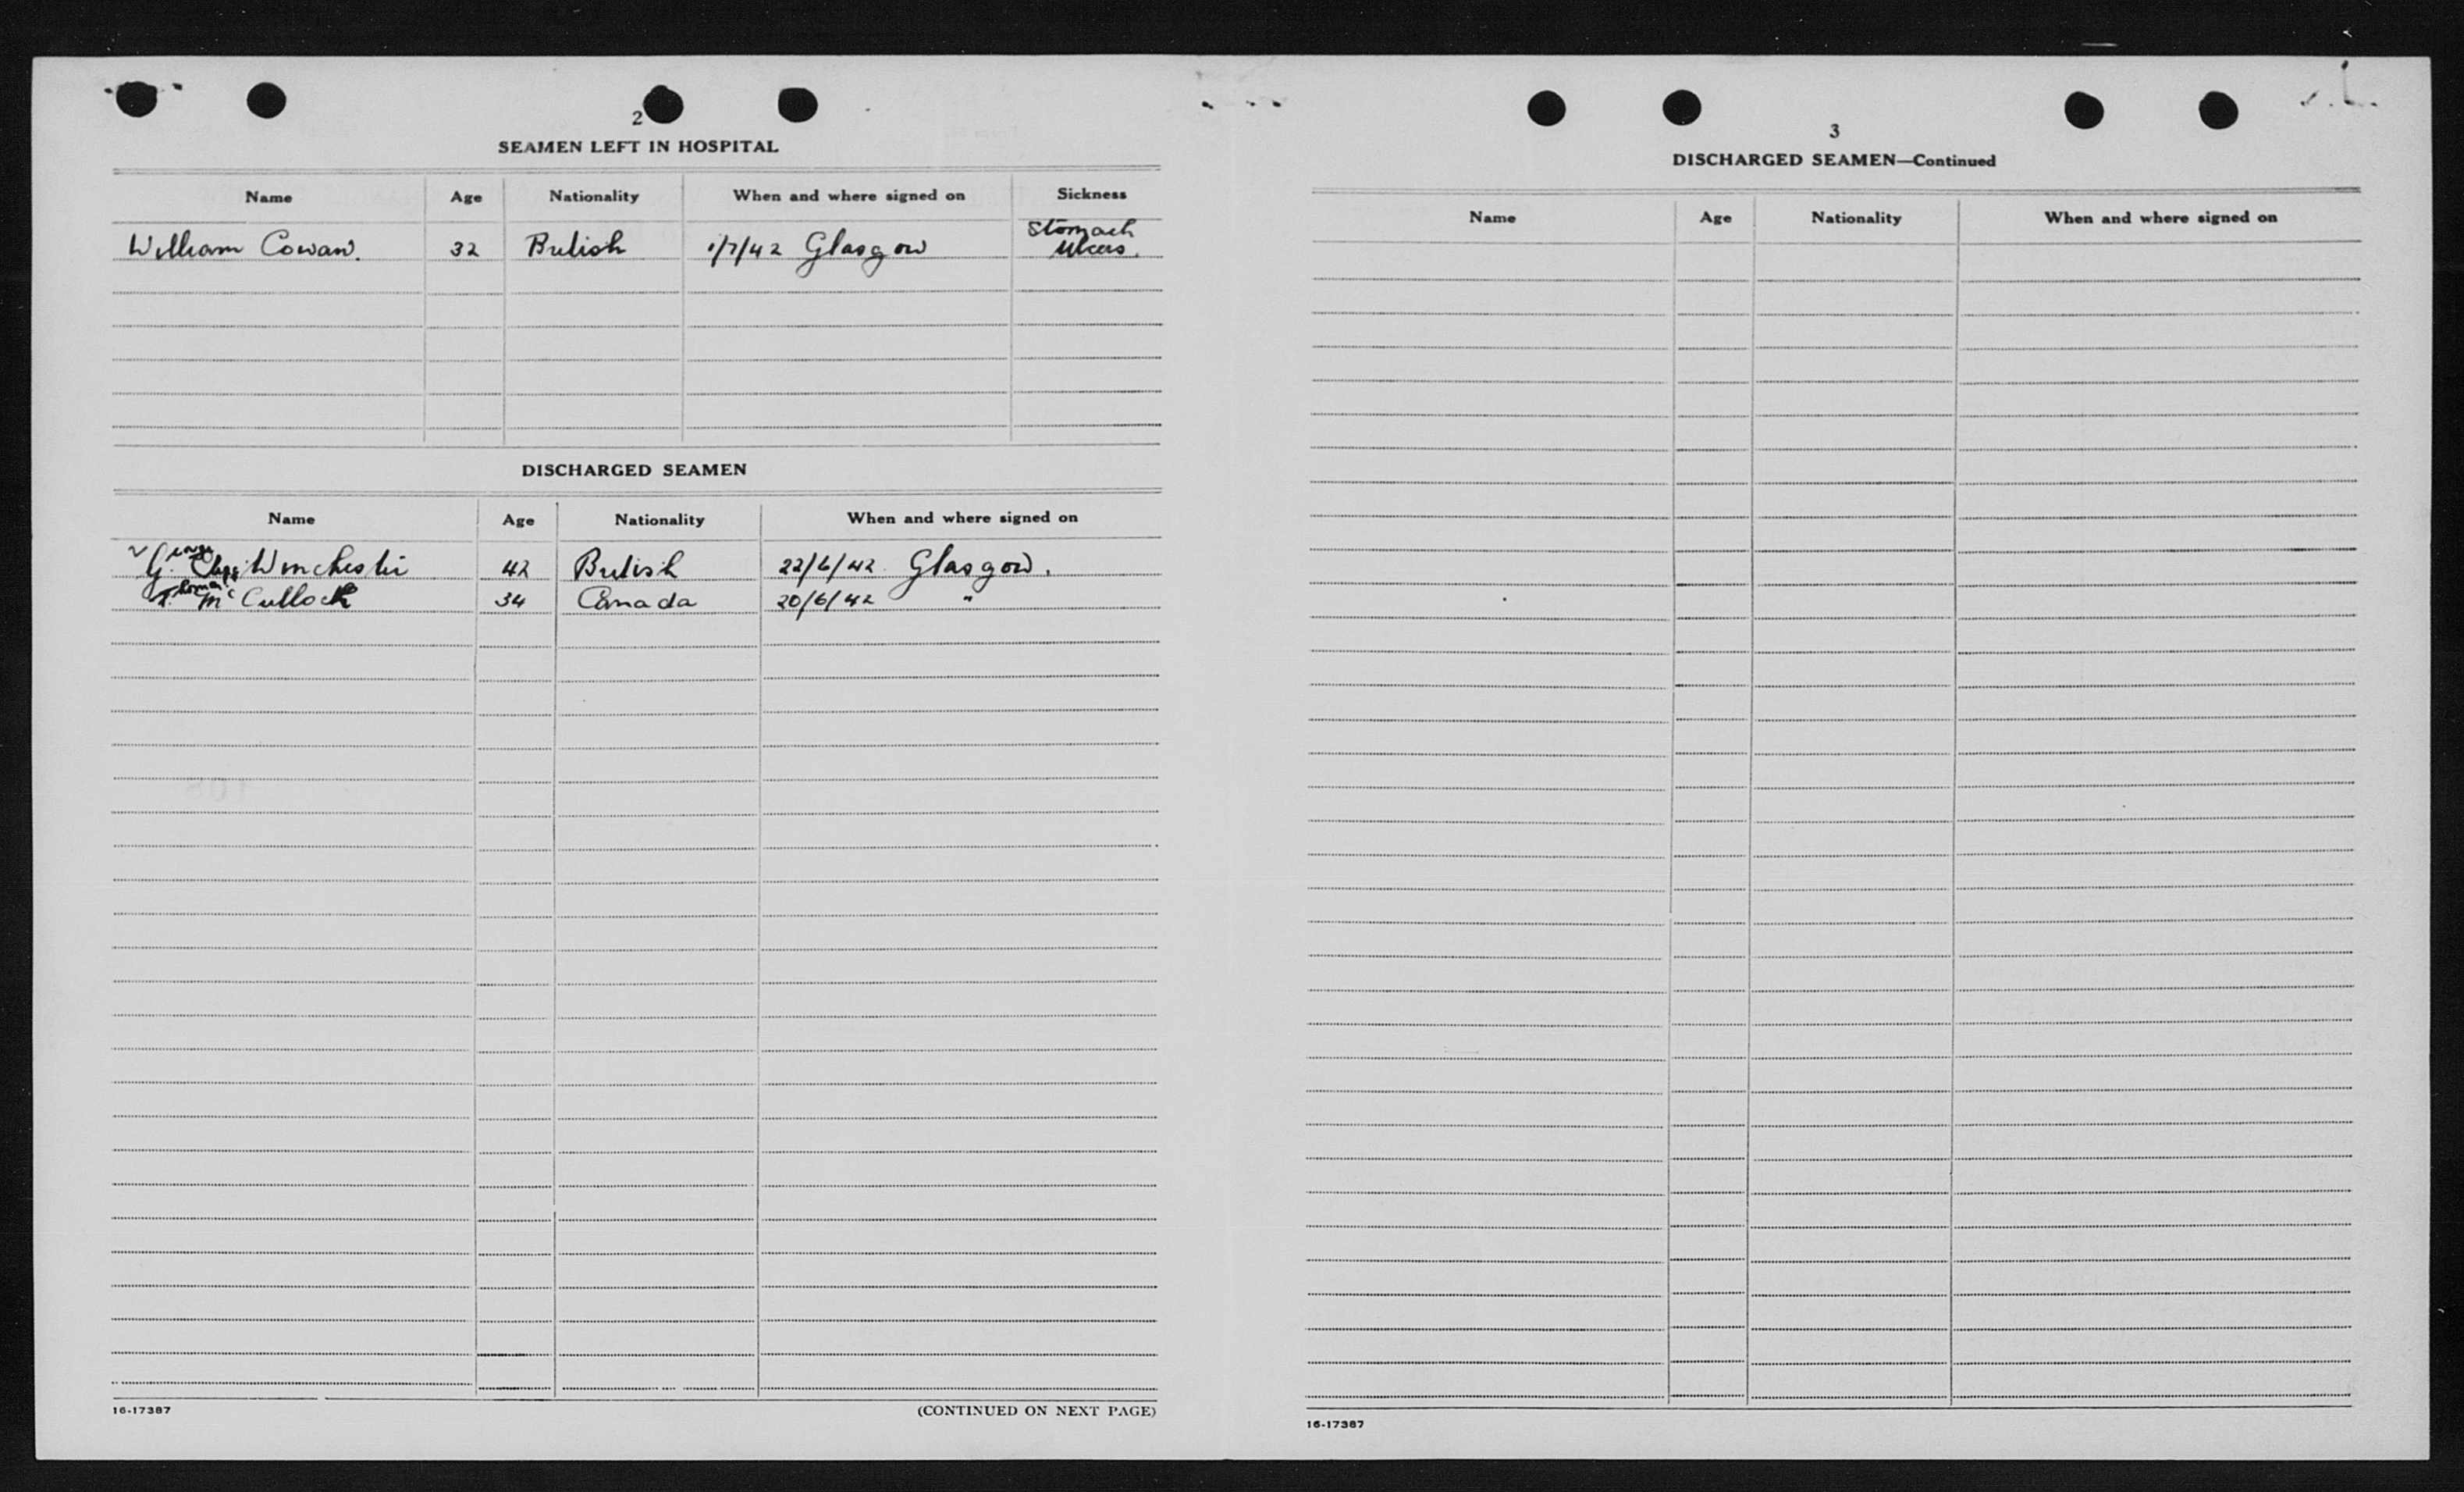 2
SEAMEN LEFT IN HOSPITAL
Name Age Nationality When and where signed on Sickness
William Cowan. 32 British 1/7/42 Glasgow Stomach Ulcers.
DISCHARGED SEAMEN
Name Age Nationality When and where signed on
George Winchester 42 British 22/6/42 Glasgow.
Thomas McCullock 34 Canada 20/6/42 "
16-17387 (CONTINUED ON NEXT PAGE)
3
DISCHARGED SEAMEN—Continued
Name Age Nationality When and where signed on
16-17387